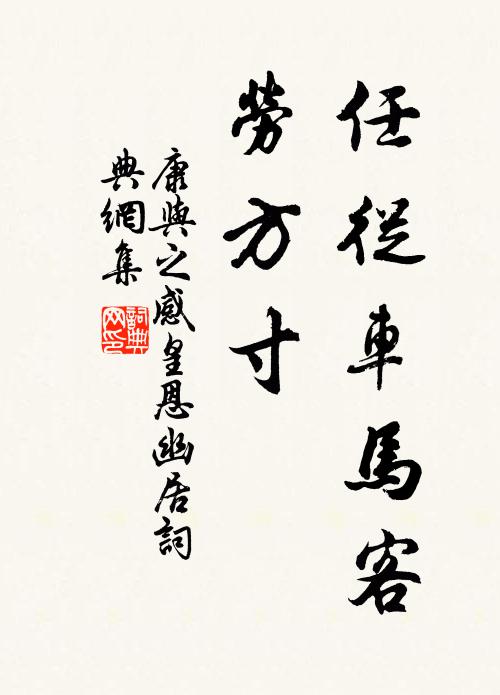 任從車馬客
勞方寸
康與之感皇恩幽居詞
典網集
詞典网印